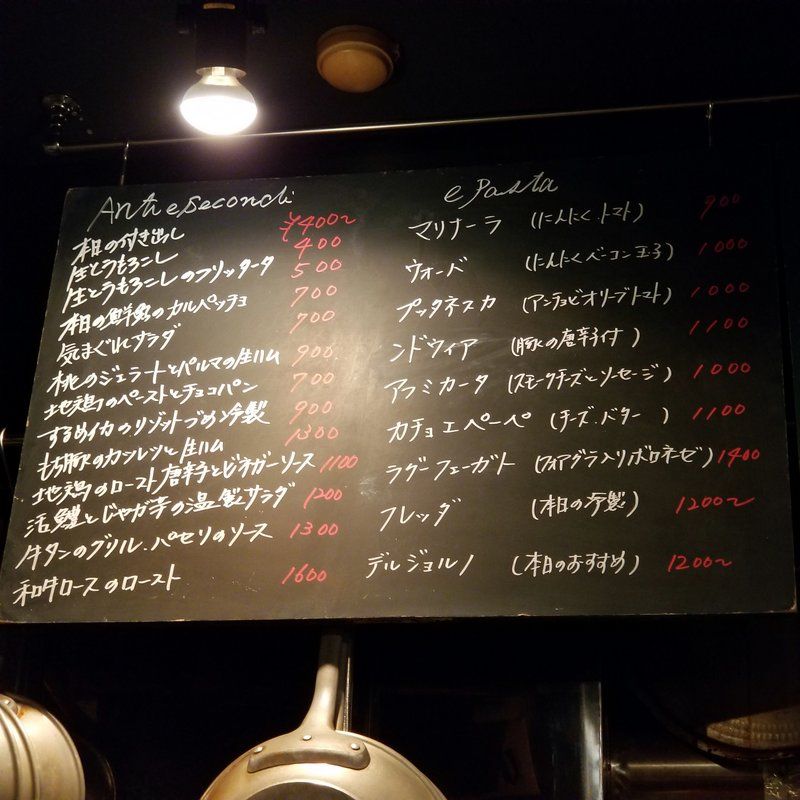 Anti e Secondi
本日の付き出し ¥400〜
生とうもろこし 400
生とうもろこしのフリッタータ 500
本日の鮮魚のカルパッチョ 700
気まぐれサラダ 700
桃のジェラートとパルマの生ハム 900
地鶏のペーストとチョコパン 700
するめイカのリゾットづめ冷製 900
もち豚のカツレツと生ハム 1300
地鶏のロースト唐辛子とビネガーソース 1100
活鱧とじゃが芋の温製サラダ 1200
牛タンのグリル.パセリのソース 1300
和牛ロースのロースト 1600
e Pasta
マリナーラ (にんにく.トマト) 900
ウォーバ (にんにくベーコン玉子) 1000
プッタネスカ (アンチョビオリーブトマト) 1000
ンドウィア (豚の唐辛子付) 1100
アフミカータ (スモークチーズとソーセージ) 1000
カチョエペーペ (チーズ.バター) 1100
ラグーフェーガト (フォアグラ入りボロネーゼ) 1400
フレッダ (本日の冷製) 1200〜
デルジョルノ (本日のおすすめ) 1200〜